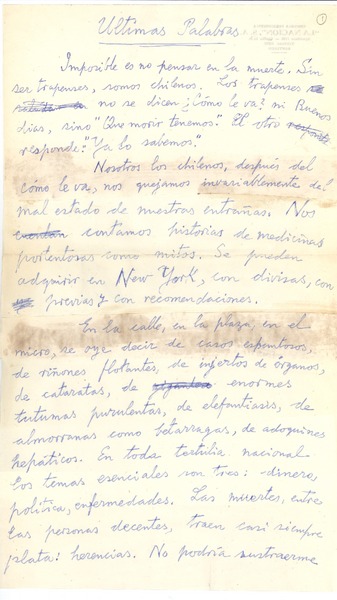 1
Ultimas Palabras
Imposible es no pensar en la muerte. Sin
ser trapenses, somos chilenos. Los trapenses
no se dicen ¿Cómo le va? ni Buenos
días, sino "Que morir tenemos." El otro
responde: "Ya lo sabemos."
Nosotros los chilenos, después del
cómo le va, nos quejamos invariablemente del
mal estado de nuestras entrañas. Nos
contamos historias de medicinas
portentosas como mitos. Se pueden
adquirir en New York, con divisas, con
previas y con recomendaciones.
En la calle, en la plaza, en el
micro, se oye decir de casos espantosos,
de riñones flotantes, de injertos de órganos,
de cataratas, de enormes
tutumas purulentas, de elefantiasis, de
almorranas como betarragas, de adoquines
hepáticos. En toda tertulia nacional
los temas esenciales son tres: dinero,
política, enfermedades. Las muertes, entre
las personas decentes, traen casi siempre
plata: herencias. No podría sustraerme